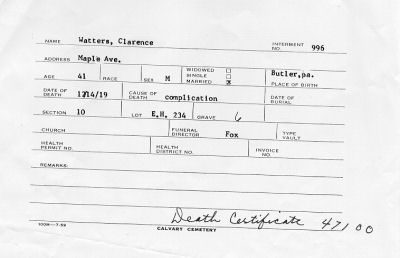 NAME Watters, Clarence INTERMENT NO. 996
ADDRESS Maple Ave.
AGE 41 RACE SEX M WIDOWED ☐ SINGLE ☐ MARRIED ☒ Butler,pa. PLACE OF BIRTH
DATE OF DEATH 12/14/19 CAUSE OF DEATH complication DATE OF BURIAL
SECTION 10 LOT E.H. 234 GRAVE 6
CHURCH FUNERAL DIRECTOR Fox TYPE VAULT
HEALTH PERMIT NO. HEALTH DISTRICT NO. INVOICE NO.
REMARKS:
Death Certificate 47100
100M-7-59 CALVARY CEMETERY